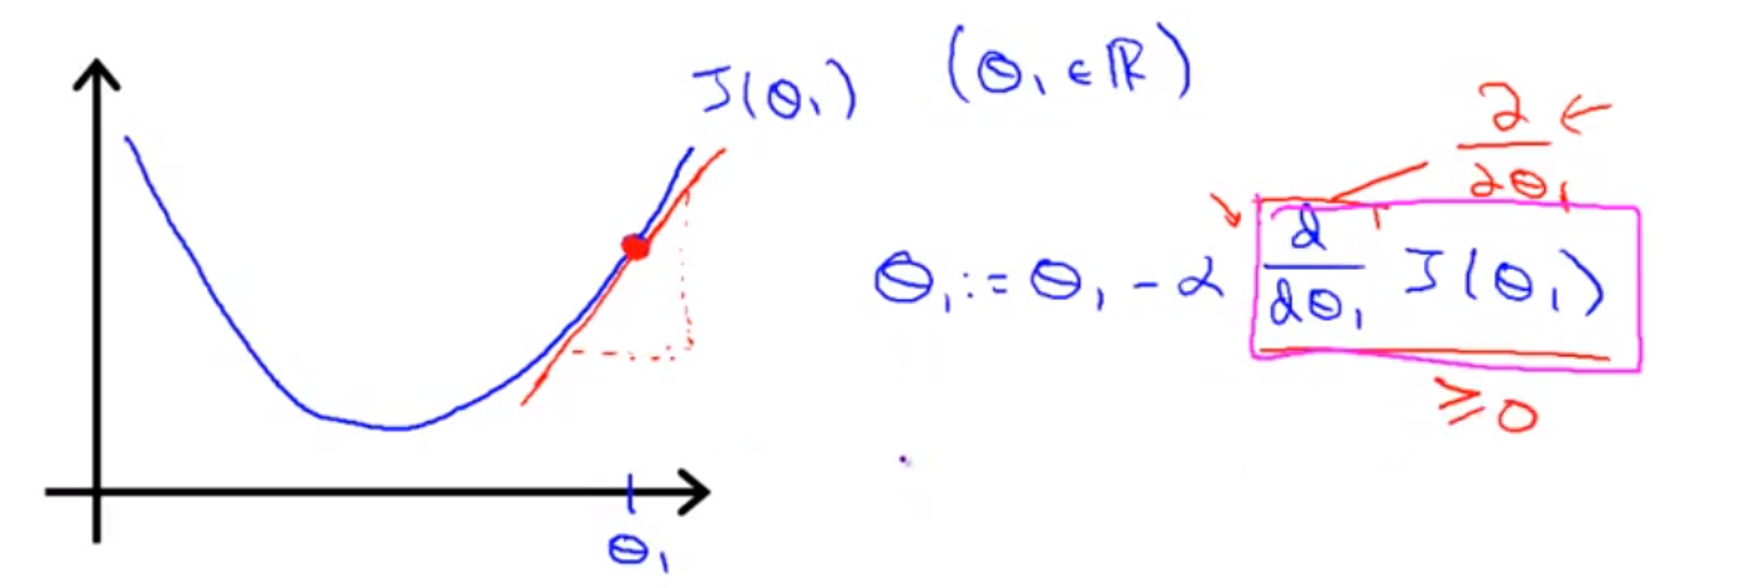 J(θ₁) (θ₁ ∈ ℝ)
∂/∂θ₁ ←
θ₁ := θ₁ - α d/dθ₁ J(θ₁)
≥ 0
θ₁